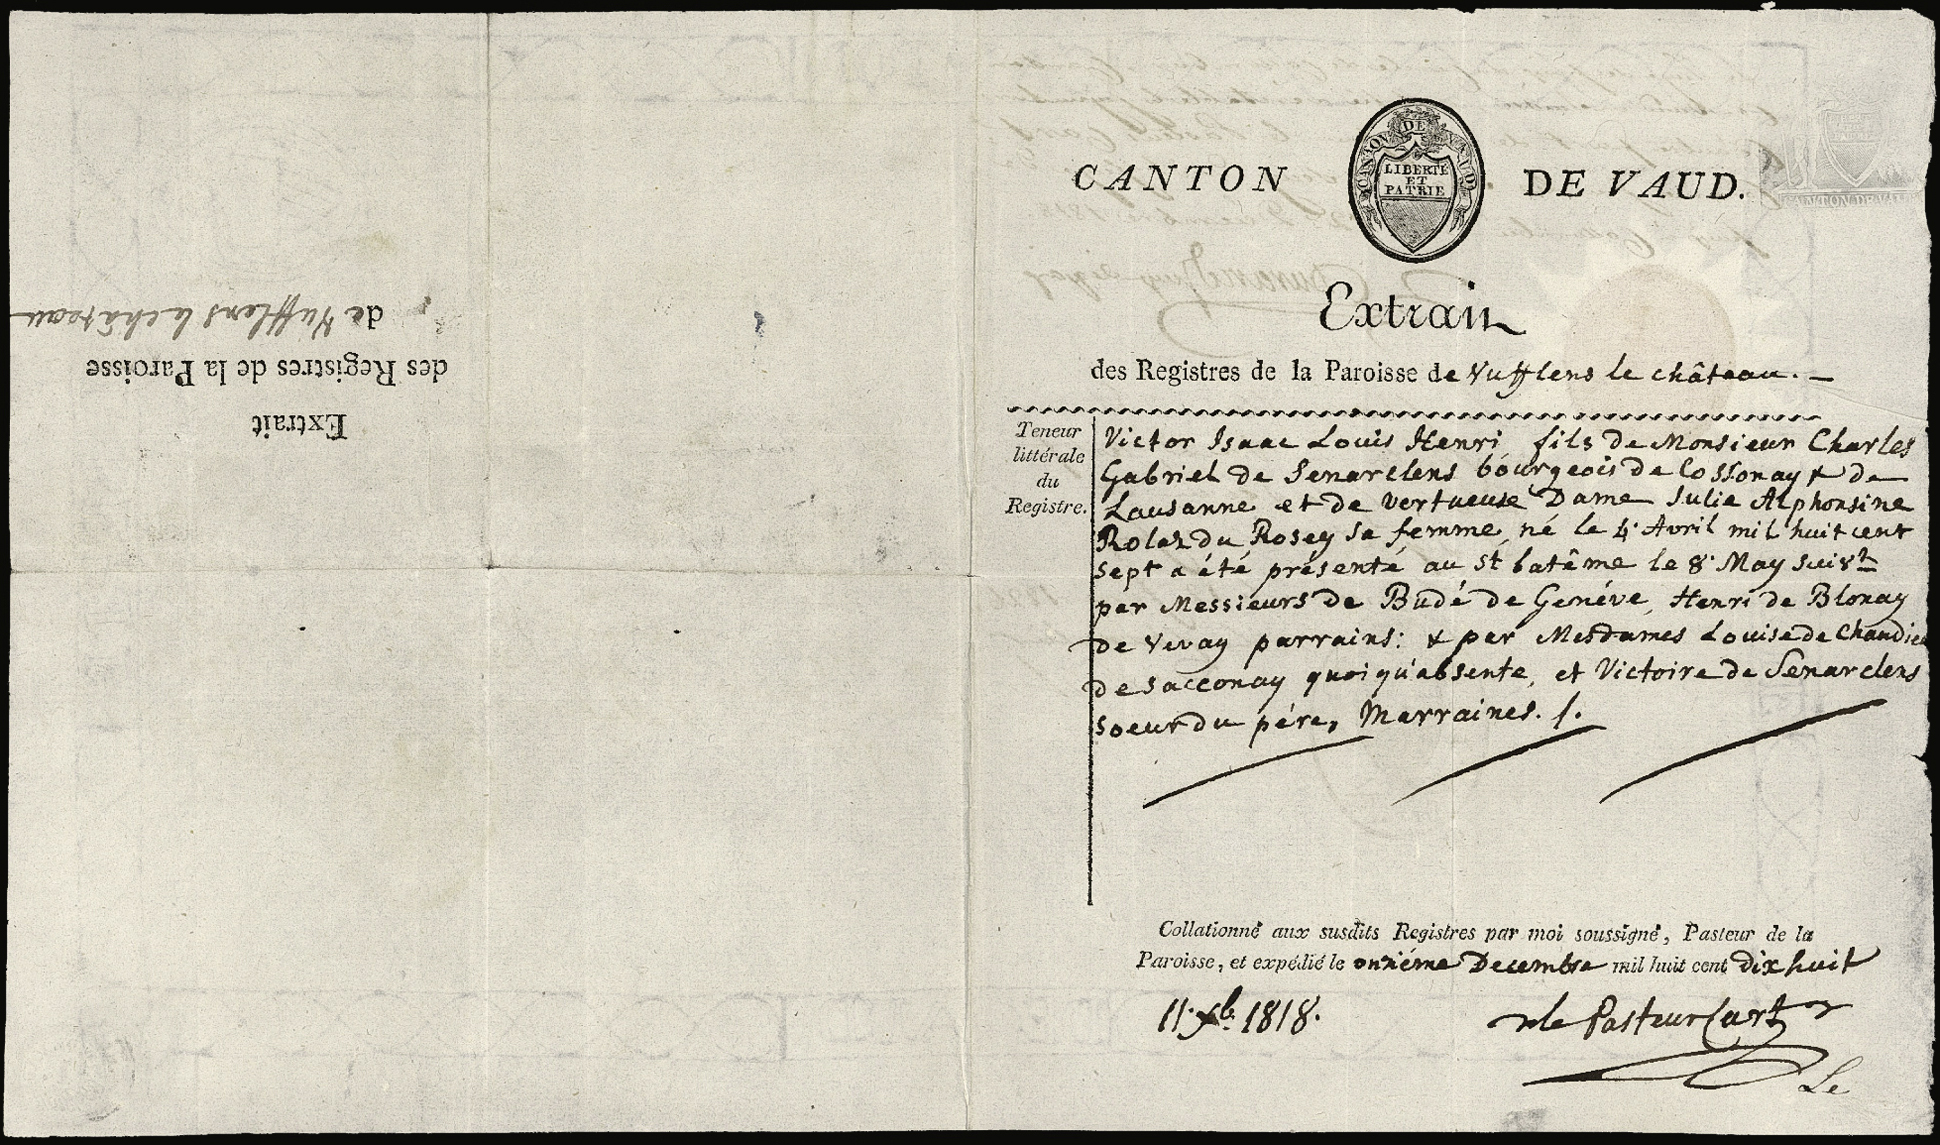 CANTON DE VAUD.
CANTON DE VAUD
LIBERTÉ
ET
PATRIE
CANTON DE VAUD
Extrait
des Registres de la Paroisse de Vufflens le château. —
Teneur
littérale
du
Registre.
Victor Isaac Louis Henri, fils de Monsieur Charles
Gabriel de Senarclens bourgeois de Cossonay & de
Lausanne et de vertueuse Dame Julie Alphonsine
Rolaz du Rosey sa femme, né le 4. Avril mil huit cent
sept a été présenté au St batême le 8. May suivt
par Messieurs de Budé de Genéve, Henri de Blonay
de Vevay parrains: & par Mesdames Louise de Chandieu
de Sacconay quoiqu'absente, et Victoire de Senarclens
soeur du pére, Marraines. /.
Collationné aux susdits Registres par moi soussigné, Pasteur de la
Paroisse, et expédié le onziéme Decembre mil huit cent dix huit
11. Xb. 1818.
le Pasteur Cart
Le
Extrait
des Registres de la Paroisse
de Vufflens le château